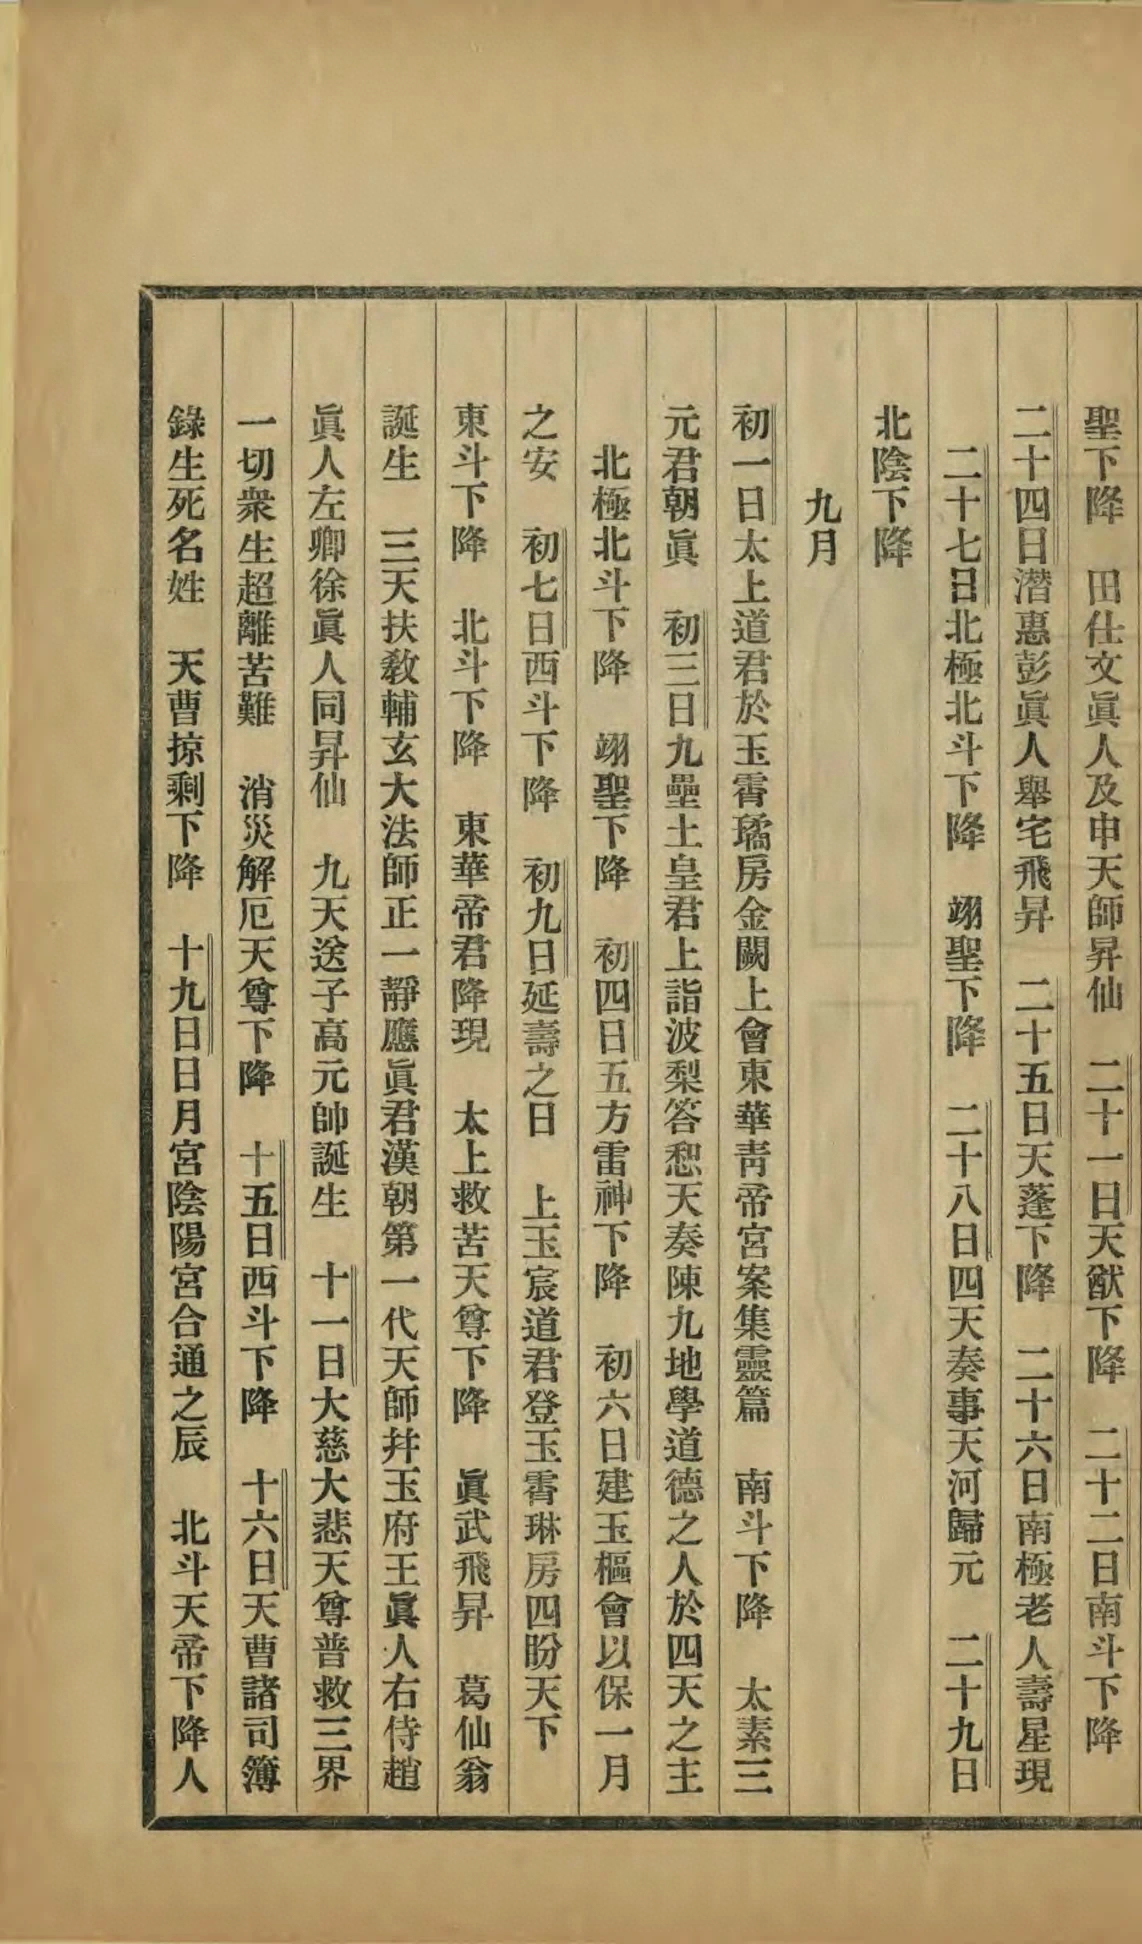 聖下降　田仕文眞人及申天師昇仙　二十一日天猷下降　二十二日南斗下降
二十四日潛惠彭眞人舉宅飛昇　二十五日天蓬下降　二十六日南極老人壽星現
二十七日北極北斗下降　翊聖下降　二十八日四天奏事天河歸元　二十九日
北陰下降
九月
初一日太上道君於玉霄璚房金闕上會東華靑帝宮案集靈篇　南斗下降　太素三
元君朝眞　初三日九壘土皇君上詣波梨答恕天奏陳九地學道德之人於四天之主
北極北斗下降　翊聖下降　初四日五方雷神下降　初六日建玉樞會以保一月
之安　初七日西斗下降　初九日延壽之日　上玉宸道君登玉霄琳房四盼天下
東斗下降　北斗下降　東華帝君降現　太上救苦天尊下降　眞武飛昇　葛仙翁
誕生　三天扶敎輔玄大法師正一靜應眞君漢朝第一代天師幷玉府王眞人右侍趙
眞人左卿徐眞人同昇仙　九天送子高元帥誕生　十一日大慈大悲天尊普救三界
一切衆生超離苦難　消災解厄天尊下降　十五日西斗下降　十六日天曹諸司簿
錄生死名姓　天曹掠剩下降　十九日日月宮陰陽宮合通之辰　北斗天帝下降人